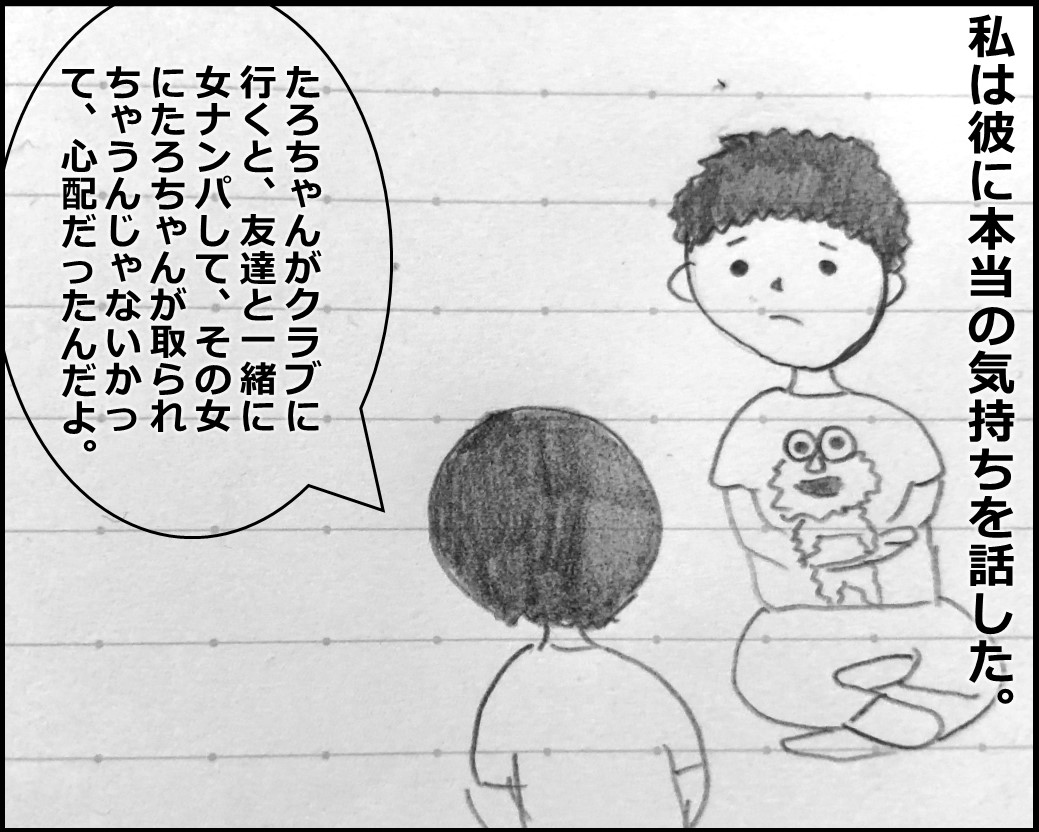 私は彼に本当の気持ちを話した。
たろちゃんがクラブに
行くと、友達と一緒に
女ナンパして、その女
にたろちゃんが取られ
ちゃうんじゃないかっ
て、心配だったんだよ。